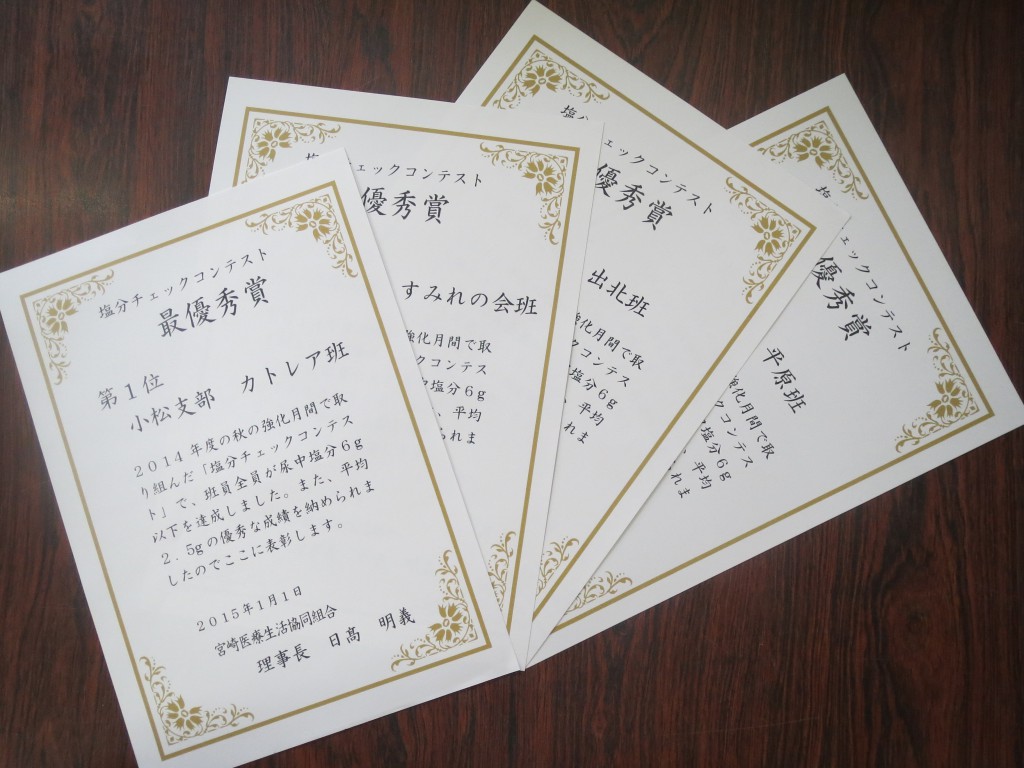 塩分チェックコンテスト
最優秀賞
第1位
小松支部　カトレア班
２０１４年度の秋の強化月間で取
り組んだ「塩分チェックコンテス
ト」で、班員全員が尿中塩分６ｇ
以下を達成しました。また、平均
２．５gの優秀な成績を納められま
したのでここに表彰します。
２０１５年１月１日
宮崎医療生活協同組合
理事長　日髙　明義
ェックコンテスト
優秀賞
すみれの会班
強化月間で取
ックコンテス
中塩分６ｇ
、平均
られま
塩分
ェックコンテスト
優秀賞
出北班
強化月間で取
クコンテス
塩分６ｇ
、平均
れま
ェックコンテスト
優秀賞
平原班
強化月間で取
ックコンテス
中塩分６ｇ
、平均
られま